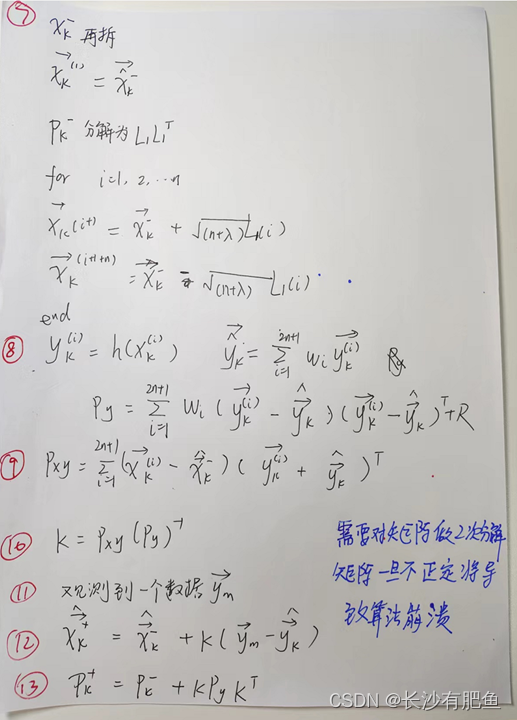 ⑦ X_K^- 再拆
\vec{X_K}^{(1)} = \vec{\hat{X}_K^-}
P_K^- 分解为 L_1L_1^T
for i=1, 2, ...n
\vec{X}_K^{(i+1)} = \vec{\hat{X}_K^-} + \sqrt{(n+λ)} L_1(i)
\vec{X_K}^{(i+1+n)} = \vec{\hat{X}_K^-} - \sqrt{(n+λ)} L_1(i)
end
⑧ y_K^{(i)} = h(X_K^{(i)}) \hat{\vec{y}}_K = \sum_{i=1}^{2n+1} w_i \vec{y_K^{(i)}}
P_y = \sum_{i=1}^{2n+1} w_i (\vec{y_K^{(i)}} - \hat{\vec{y}}_K)(\vec{y_K^{(i)}} - \hat{\vec{y}}_K)^T + R
⑨ P_{xy} = \sum_{i=1}^{2n+1} (\vec{X_K^{(i)}} - \hat{\vec{X}}_K^-)(\vec{y_K^{(i)}} + \hat{\vec{y}}_K)^T
⑩ K = P_{xy}(P_y)^{-1}
⑪ 观测到一个数据 \vec{y_m}
⑫ \hat{\vec{X}}_K^+ = \hat{\vec{X}}_K^- + K(\vec{y_m} - \hat{\vec{y}}_K)
⑬ P_K^+ = P_K^- + K P_y K^T
需要对矩阵做2次分解
矩阵一旦不正定将导
致算法崩溃
CSDN @长沙有肥鱼